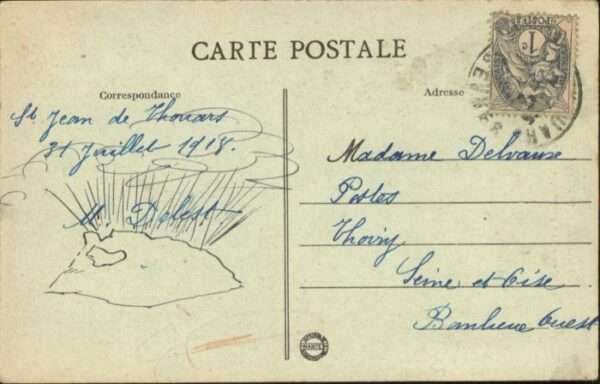 CARTE POSTALE
Correspondance
St Jean de Thouars
31 Juillet 1918.
M. Delest
Adresse
POSTES
1c
Madame Delvause
Postes
Thoiry
Seine et Oise
Banlieue Ouest